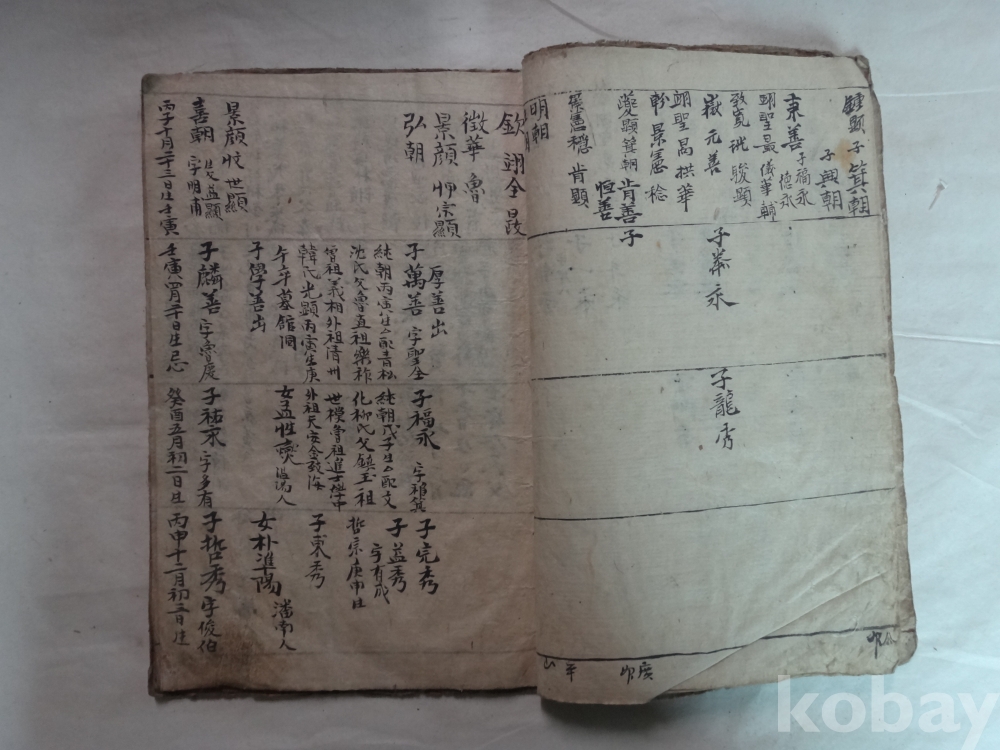 鍾顯 子箕朝
子興朝
東善 子福永
德永
翊聖最儀華輔
敎寬 駿顯
嶽元善
翊聖昌拱華
軫景憲稔
顯箕朝 肯善 子
恒善
景憲穩 肯顯
明朝
子蓁永
子龍秀
印
印廣
平
山
欽翊全
徵華魯
景顔 宗顯
弘朝
景顔 世顯
喜朝 生父益顯
字明甫
丙子十月二十三日生壬寅
厚善出
子萬善 字聖全
純朝丙寅生 配靑松
沈氏父魯直祖樂祚
曾祖義相外祖淸州
韓氏光顯丙寅生庚
午卒墓館洞
子學善出
子麟善 字魯慶
壬寅四月二十日生忌
子福永 字
純朝戊子生 配文
化柳氏父鎭玉祖
世模曾祖進士學中
外祖天安金致海
女孟性 溫陽人
子祐永 字多有
癸酉五月初二日生
子完秀
子益秀
字有成
哲宗庚申生
子東秀
女朴準陽
潘南人
子哲秀 字俊伯
丙申十二月初三日生
kobay